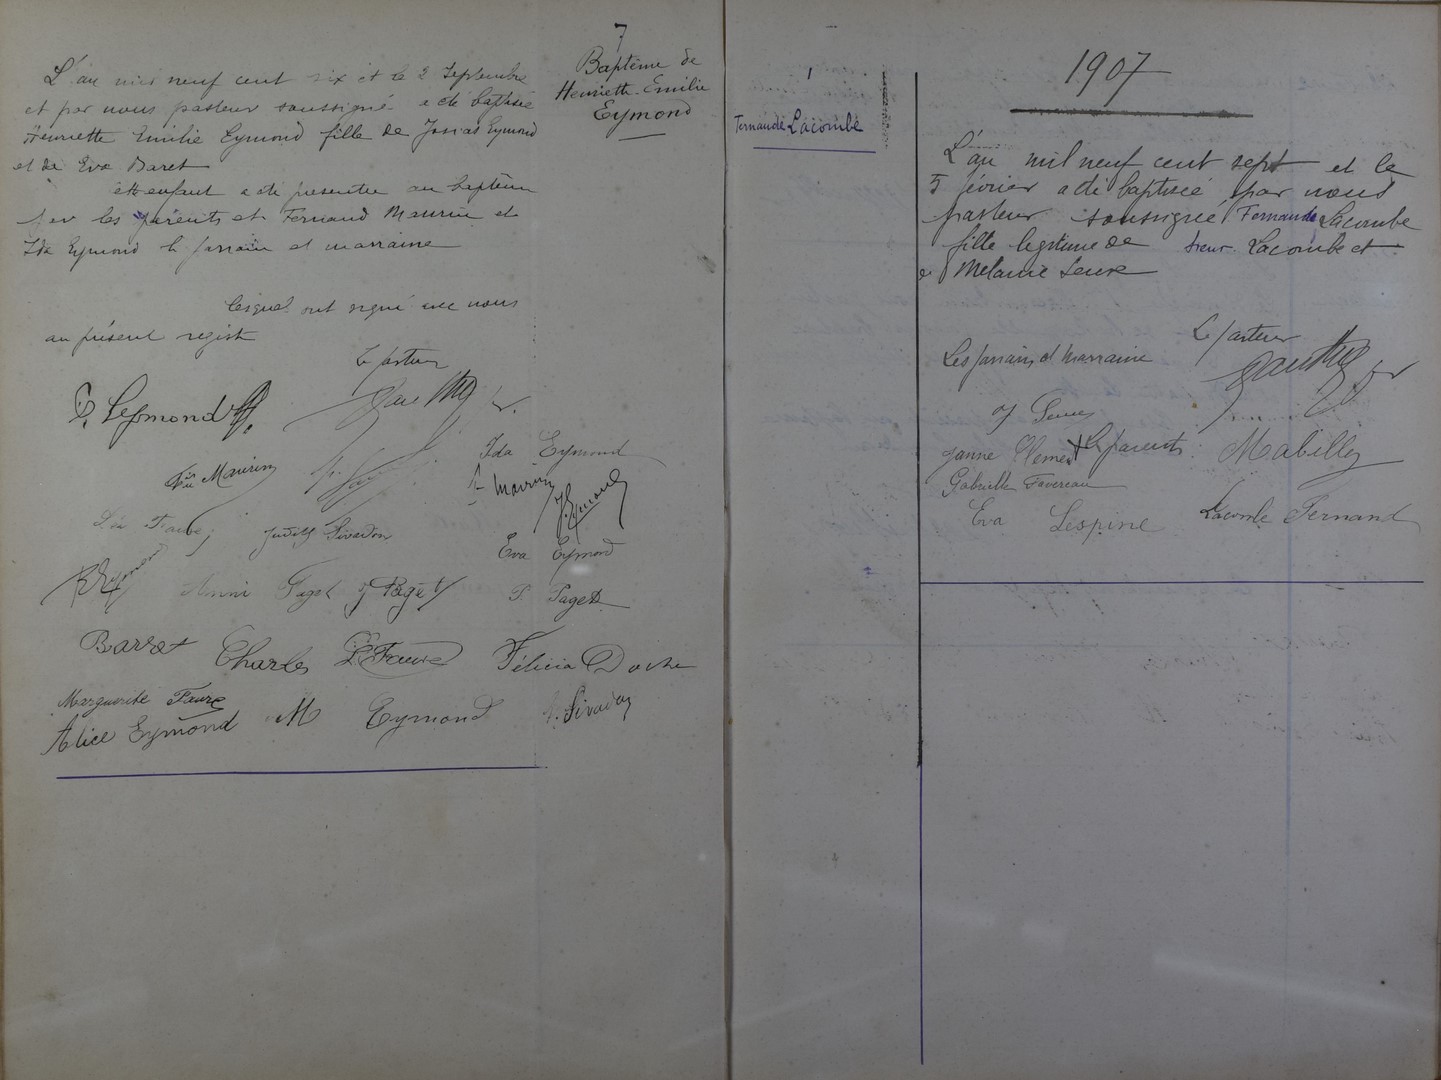 7
Baptême de
Henriette-Emilie
Eymond
L'an mil neuf cent six et le 2 Septembre
et par nous pasteur soussigné a été baptisée
Henriette Emilie Eymond fille de Josias Eymond
et de Eva Baret
cett enfant a été présentée au baptême
par les parents et Fernand Maurin et
Ida Eymond le parrain et marraine
lesquels ont signé avec nous
au présent registre
Le pasteur
Ida Eymond
Maurin
Maurin
Faure
Judith Sivadon
Eva Eymond
Paget
J Paget
P. Paget
Barret
Charles
Faure
Félicia
Marguerite Faure
Alice Eymond
M Eymond
Sivadon
1
Fernande Lacombe
1907
L'an mil neuf cent sept et le
5 février a été baptisée par nous
pasteur soussigné Fernande Lacombe
fille légitime de sieur Lacombe et
de Mélanie
Le pasteur
Les parrains et marraine
Les parents
Mabilly
Gabrielle Favereau
Eva Lespine
Lacombe Fernand